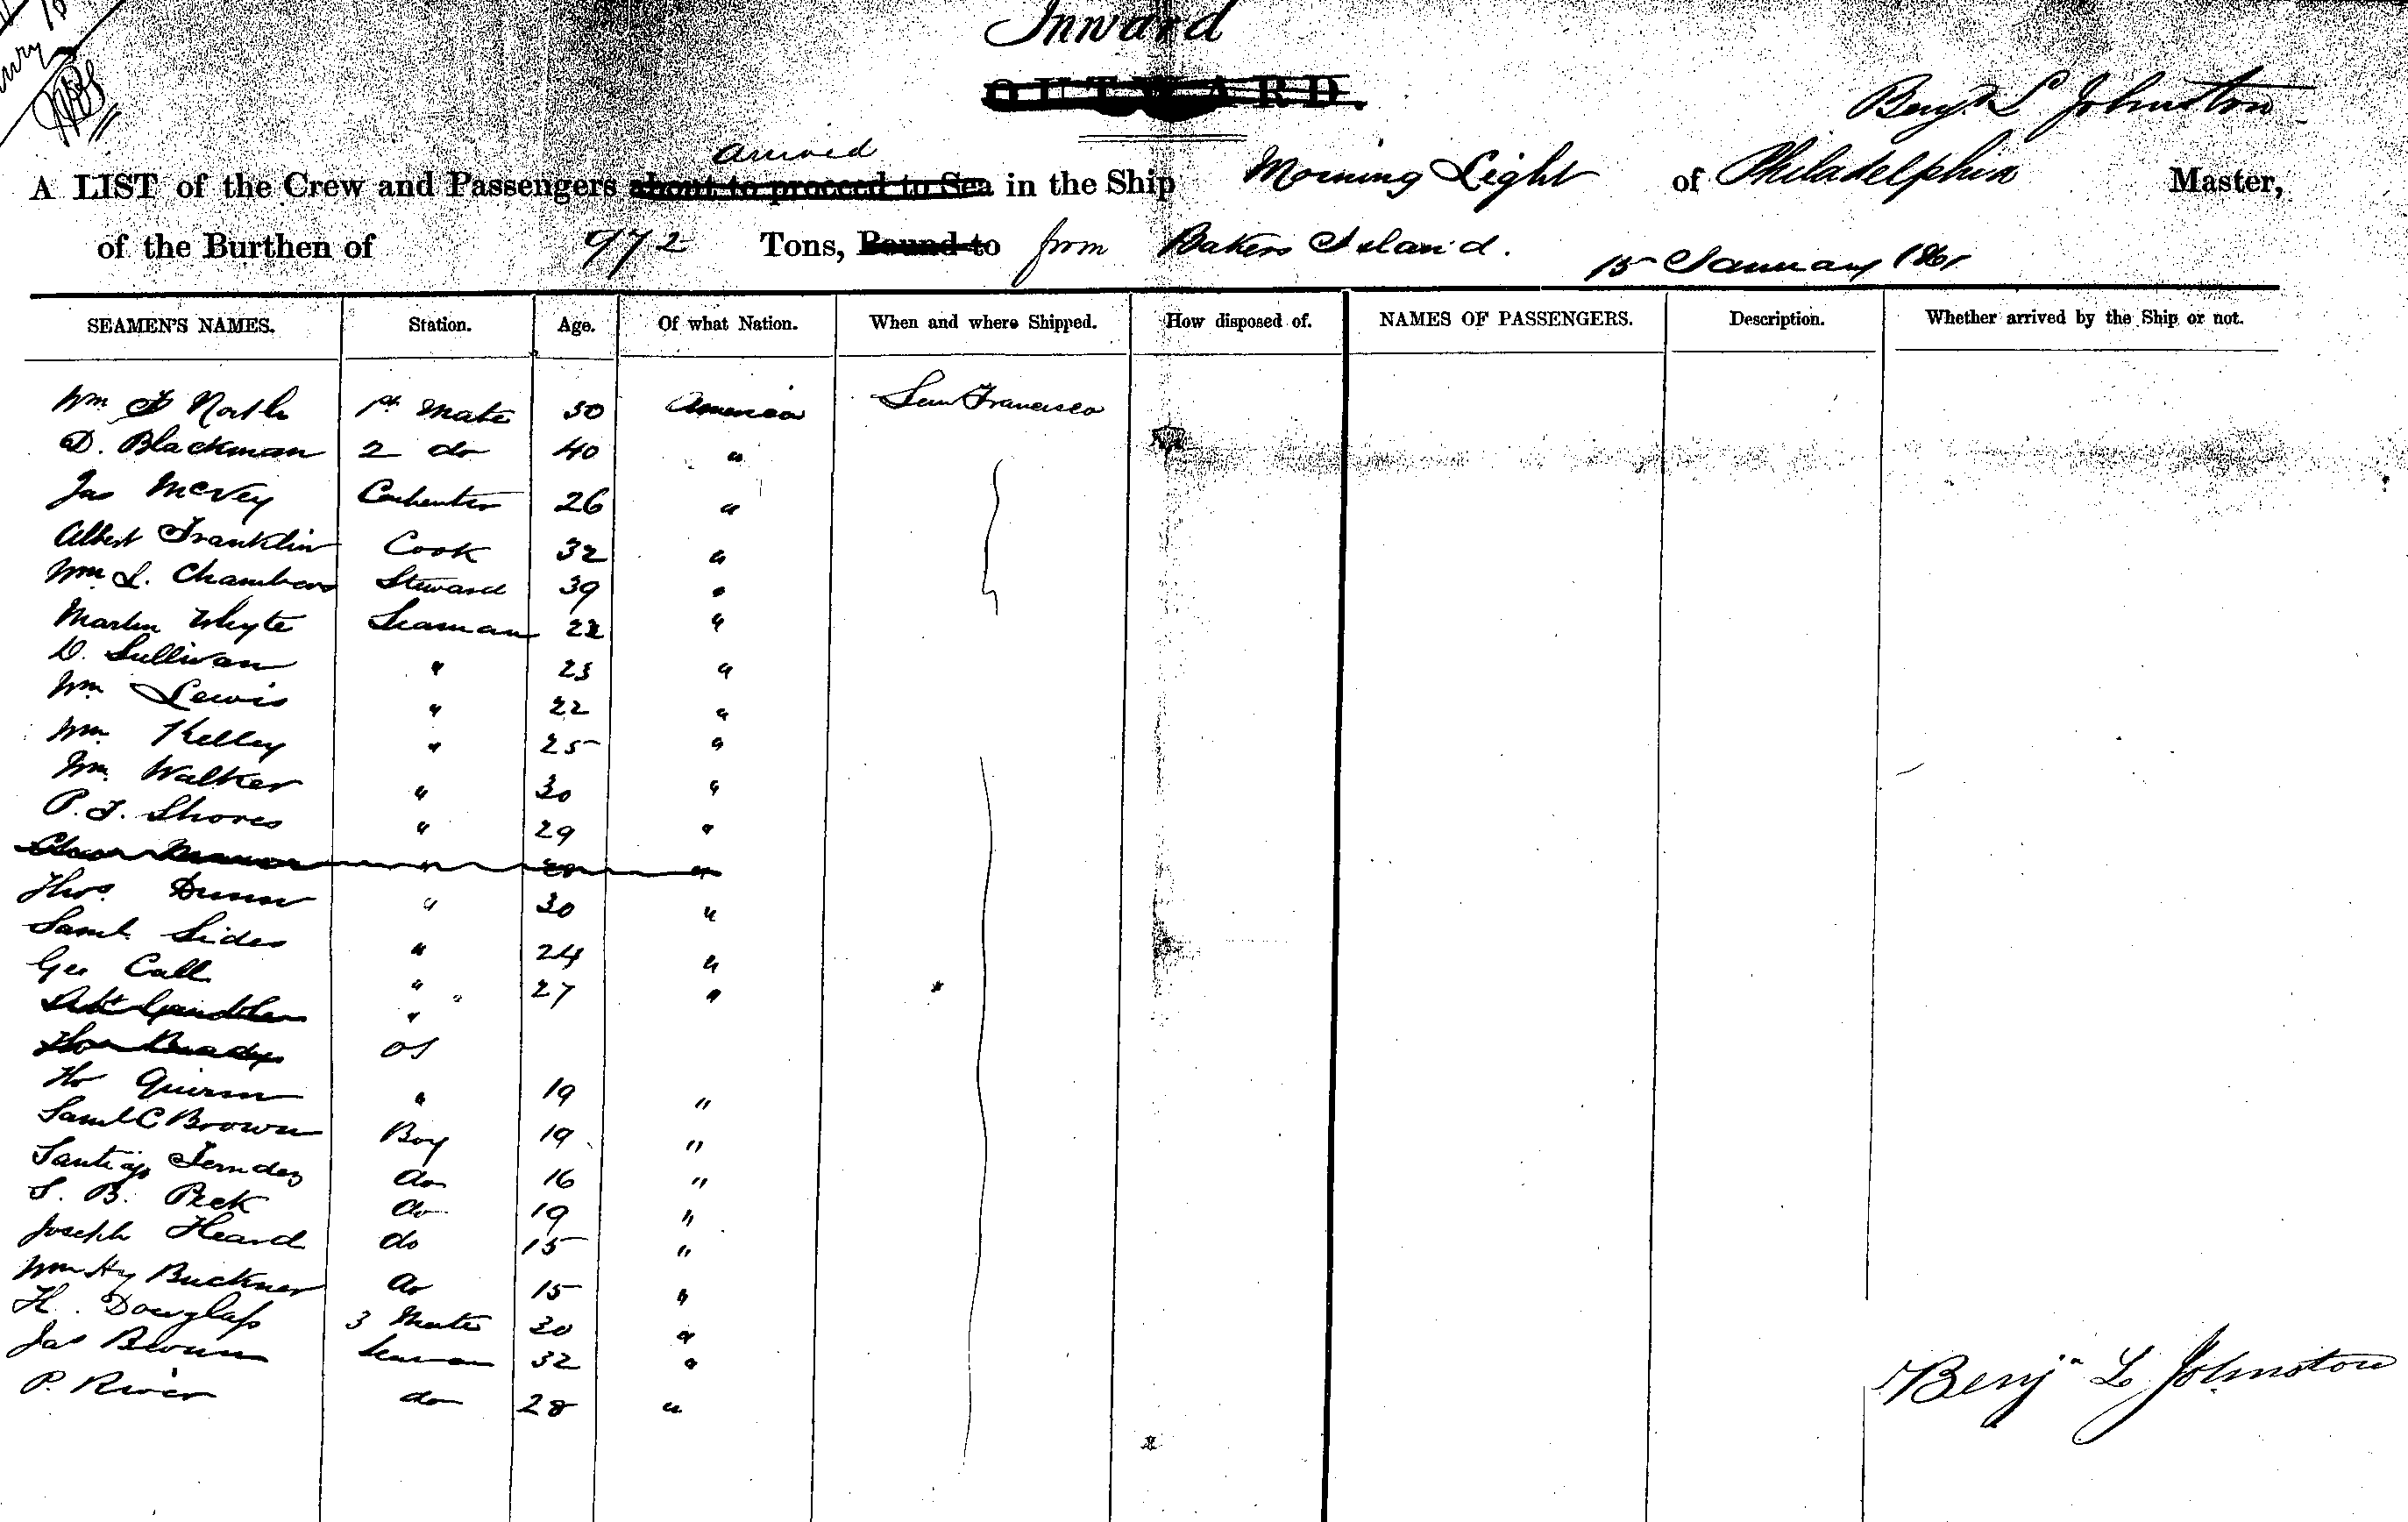 Inward
OUTWARD.
Benjn L Johnston
arrived
A LIST of the Crew and Passengers about to proceed to Sea in the Ship Morning Light of Philadelphia Master,
of the Burthen of 972 Tons, Bound to from Bakers Island. 15 January 1861
SEAMEN'S NAMES. Station. Age. Of what Nation. When and where Shipped. How disposed of. NAMES OF PASSENGERS. Description. Whether arrived by the Ship or not.
Wm F North 1st Mate 30 America San Francisco
D. Blackman 2 do 40 "
Jas McVey Carpenter 26 "
Albert Franklin Cook 32 "
Wm L. Chambers Steward 39 "
Martin Whyte Seaman 22 "
D. Sullivan " 23 "
Wm Lewis " 22 "
Wm Kelley " 25 "
Wm Walker " 30 "
P. J. Shores " 29 "
" "
Thos. Dunn " 30 "
Saml Sides " 24 "
Geo Call " 27 "
"
Brady OS
Quinn " 19 "
Saml C Brown Boy 19 "
Santiago do 16 "
S. B. Peck do 19 "
Joseph Heard do 15 "
Wm Hy Buckner do 15 "
H. Douglass 3 Mate 30 "
Jas Brown Seaman 32 "
P. River do 28 "
Benjn L Johnston